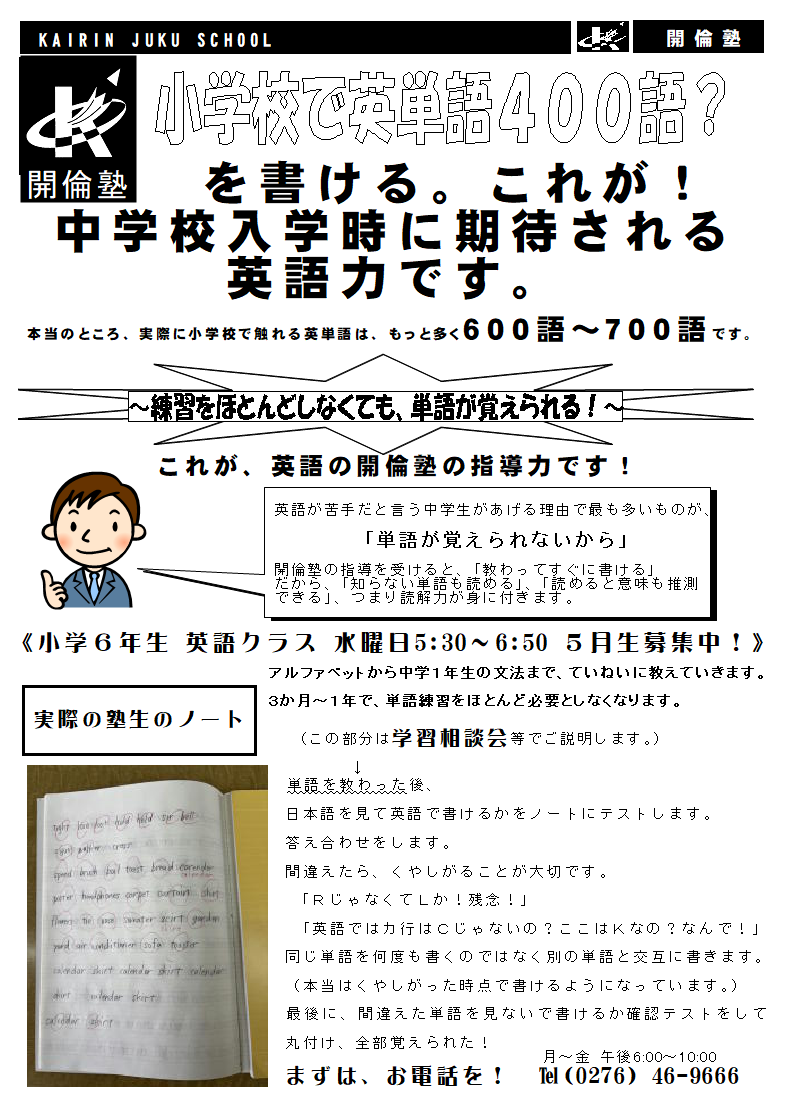 KAIRIN JUKU SCHOOL
開倫塾
開倫塾
小学校で英単語４００語？
を書ける。これが！
中学校入学時に期待される
英語力です。
本当のところ、実際に小学校で触れる英単語は、もっと多く600語～700語です。
～練習をほとんどしなくても、単語が覚えられる！～
これが、英語の開倫塾の指導力です！
英語が苦手だと言う中学生があげる理由で最も多いものが、
「単語が覚えられないから」
開倫塾の指導を受けると、「教わってすぐに書ける」
だから、「知らない単語も読める」、「読めると意味も推測
できる」、つまり読解力が身に付きます。
《小学６年生 英語クラス 水曜日5:30～6:50 ５月生募集中！》
アルファベットから中学１年生の文法まで、ていねいに教えていきます。
3か月～１年で、単語練習をほとんど必要としなくなります。
実際の塾生のノート
（この部分は学習相談会等でご説明します。）
↓
単語を教わった後、
日本語を見て英語で書けるかをノートにテストします。
答え合わせをします。
間違えたら、くやしがることが大切です。
「ＲじゃなくてＬか！残念！」
「英語ではカ行はＣじゃないの？ここはＫなの？なんで！」
同じ単語を何度も書くのではなく別の単語と交互に書きます。
（本当はくやしがった時点で書けるようになっています。）
最後に、間違えた単語を見ないで書けるか確認テストをして
丸付け、全部覚えられた！
月～金 午後6:00～10:00
まずは、お電話を！ ℡(0276) 46-9666
calendar skirt calendar skirt calendar
skirt calendar skirt
calendar skirt